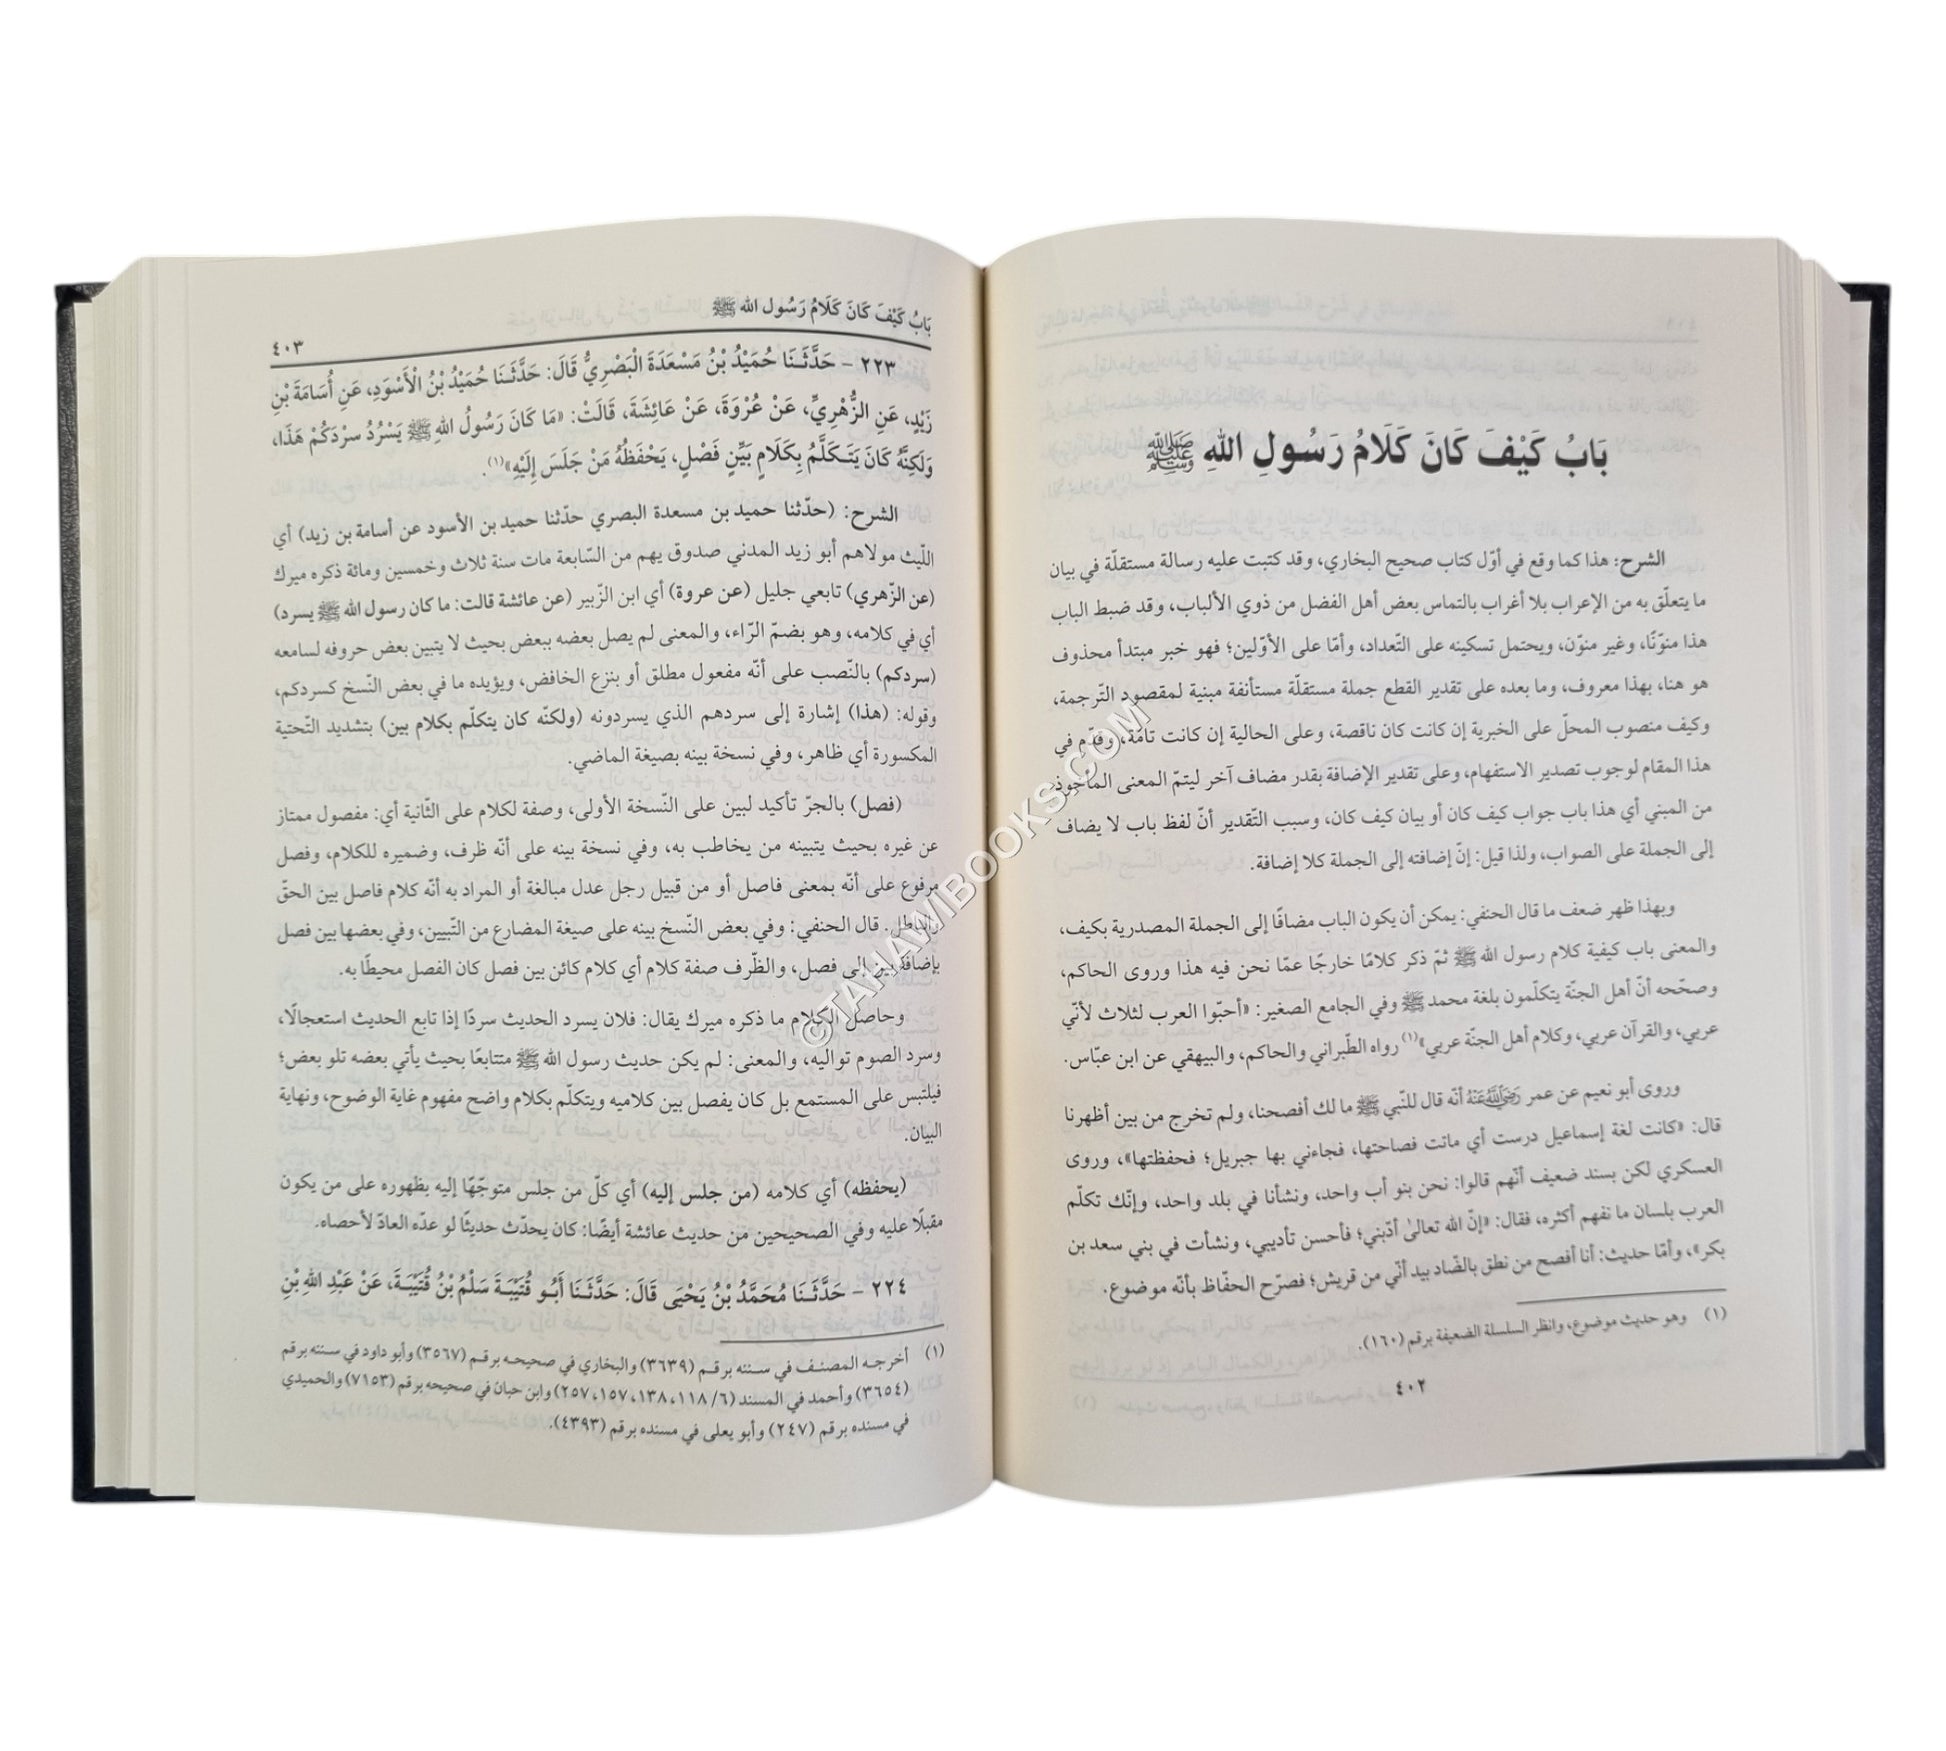 بَابُ كَيْفَ كَانَ كَلَامُ رَسُولِ اللهِ ﷺ
الشرح: هذا كما وقع في أوّل كتاب صحيح البخاري، وقد كتبت عليه رسالة مستقلّة في بيان
ما يتعلّق به من الإعراب بلا أغراب بالتماس بعض أهل الفضل من ذوي الألباب، وقد ضبط الباب
هذا منوّنًا، وغير منوّن، ويحتمل تسكينه على التّعداد، وأمّا على الأوّلين؛ فهو خبر مبتدأ محذوف
هو هنا، بهذا معروف، وما بعده على تقدير القطع جملة مستقلّة مستأنفة مبنية لمقصود التّرجمة،
وكيف منصوب المحلّ على الخبرية إن كانت كان ناقصة، وعلى الحالية إن كانت تامّة، وقدّم في
هذا المقام لوجوب تصدير الاستفهام، وعلى تقدير الإضافة بقدر مضاف آخر ليتمّ المعنى المأخوذ
من المبني أي هذا باب جواب كيف كان أو بيان كيف كان، وسبب التّقدير أنّ لفظ باب لا يضاف
إلى الجملة على الصواب، ولذا قيل: إنّ إضافته إلى الجملة كلا إضافة.
وبهذا ظهر ضعف ما قال الحنفي: يمكن أن يكون الباب مضافًا إلى الجملة المصدرية بكيف،
والمعنى باب كيفية كلام رسول الله ﷺ ثمّ ذكر كلامًا خارجًا عمّا نحن فيه هذا وروى الحاكم،
وصحّحه أنّ أهل الجنّة يتكلّمون بلغة محمد ﷺ وفي الجامع الصغير: «أحبّوا العرب لثلاث لأنّي
عربي، والقرآن عربي، وكلام أهل الجنّة عربي»(١) رواه الطّبراني والحاكم، والبيهقي عن ابن عبّاس.
وروى أبو نعيم عن عمر رَضِيَ اللَّهُ عَنْهُ أنّه قال للنّبي ﷺ ما لك أفصحنا، ولم تخرج من بين أظهرنا
قال: «كانت لغة إسماعيل درست أي ماتت فصاحتها، فجاءني بها جبريل؛ فحفظتها»، وروى
العسكري لكن بسند ضعيف أنّهم قالوا: نحن بنو أب واحد، ونشأنا في بلد واحد، وإنّك تكلّم
العرب بلسان ما نفهم أكثره، فقال: «إنّ الله تعالىٰ أدّبني؛ فأحسن تأديبي، ونشأت في بني سعد بن
بكر»، وأمّا حديث: أنا أفصح من نطق بالضّاد بيد أنّي من قريش؛ فصرّح الحفّاظ بأنّه موضوع.
(١) وهو حديث موضوع، وانظر السلسلة الضعيفة برقم (١٦٠).
٤٠٢
بَابُ كَيْفَ كَانَ كَلَامُ رَسُول الله ﷺ
٤٠٣
٢٢٣ - حَدَّثَنَا حُمَيْدُ بْنُ مَسْعَدَةَ الْبَصْرِيُّ قَالَ: حَدَّثَنَا حُمَيْدُ بْنُ الْأَسْوَدِ، عَنِ أُسَامَةَ بْنِ
زَيْدٍ، عَنِ الزُّهْرِيِّ، عَنْ عُرْوَةَ، عَنْ عَائِشَةَ، قَالَتْ: «مَا كَانَ رَسُولُ اللهِ ﷺ يَسْرُدُ سردَكُمْ هَذَا،
وَلَكِنَّهُ كَانَ يَتَكَلَّمُ بِكَلَامٍ بَيِّنٍ فَصْلٍ، يَحْفَظُهُ مَنْ جَلَسَ إِلَيْهِ»(١).
الشرح: (حدّثنا حميد بن مسعدة البصري حدّثنا حميد بن الأسود عن أسامة بن زيد) أي
اللّيث مولاهم أبو زيد المدني صدوق يهم من السّابعة مات سنة ثلاث وخمسين ومائة ذكره ميرك
(عن الزّهري) تابعي جليل (عن عروة) أي ابن الزّبير (عن عائشة قالت: ما كان رسول الله ﷺ يسرد)
أي في كلامه، وهو بضمّ الرّاء، والمعنى لم يصل بعضه ببعض بحيث لا يتبين بعض حروفه لسامعه
(سردكم) بالنّصب على أنّه مفعول مطلق أو بنزع الخافض، ويؤيده ما في بعض النّسخ كسردكم،
وقوله: (هذا) إشارة إلى سردهم الذي يسردونه (ولكنّه كان يتكلّم بكلام بين) بتشديد التّحتية
المكسورة أي ظاهر، وفي نسخة بينه بصيغة الماضي.
(فصل) بالجرّ تأكيد لبين على النّسخة الأولى، وصفة لكلام على الثّانية أي: مفصول ممتاز
عن غيره بحيث يتبينه من يخاطب به، وفي نسخة بينه على أنّه ظرف، وضميره للكلام، وفصل
مرفوع على أنّه بمعنى فاصل أو من قبيل رجل عدل مبالغة أو المراد به أنّه كلام فاصل بين الحقّ
والباطل. قال الحنفي: وفي بعض النّسخ بينه على صيغة المضارع من التّبيين، وفي بعضها بين فصل
بإضافة بين إلى فصل، والظّرف صفة كلام أي كلام كائن بين فصل كان الفصل محيطًا به.
وحاصل الكلام ما ذكره ميرك يقال: فلان يسرد الحديث سردًا إذا تابع الحديث استعجالًا،
وسرد الصوم تواليه، والمعنى: لم يكن حديث رسول الله ﷺ متتابعًا بحيث يأتي بعضه تلو بعض؛
فيلتبس على المستمع بل كان يفصل بين كلاميه ويتكلّم بكلام واضح مفهوم غاية الوضوح، ونهاية
البيان.
(يحفظه) أي كلامه (من جلس إليه) أي كلّ من جلس متوجّهًا إليه بظهوره على من يكون
مقبلًا عليه وفي الصحيحين من حديث عائشة أيضًا: كان يحدّث حديثًا لو عدّه العادّ لأحصاه.
٢٢٤ - حَدَّثَنَا مُحَمَّدُ بْنُ يَحْيَى قَالَ: حَدَّثَنَا أَبُو قُتَيْبَةَ سَلْمُ بْنُ قُتَيْبَةَ، عَنْ عَبْدِ اللهِ بْنِ
(١) أخرجه المصنف في سننه برقم (٣٦٣٩) والبخاري في صحيحه برقم (٣٥٦٧) وأبو داود في سننه برقم
(٣٦٥٤) وأحمد في المسند (٦/ ١١٨، ١٣٨، ١٥٧، ٢٥٧) وابن حبان في صحيحه برقم (٧١٥٣) والحميدي
في مسنده برقم (٢٤٧) وأبو يعلى في مسنده برقم (٤٣٩٣).
© TAHAWIBOOKS.COM